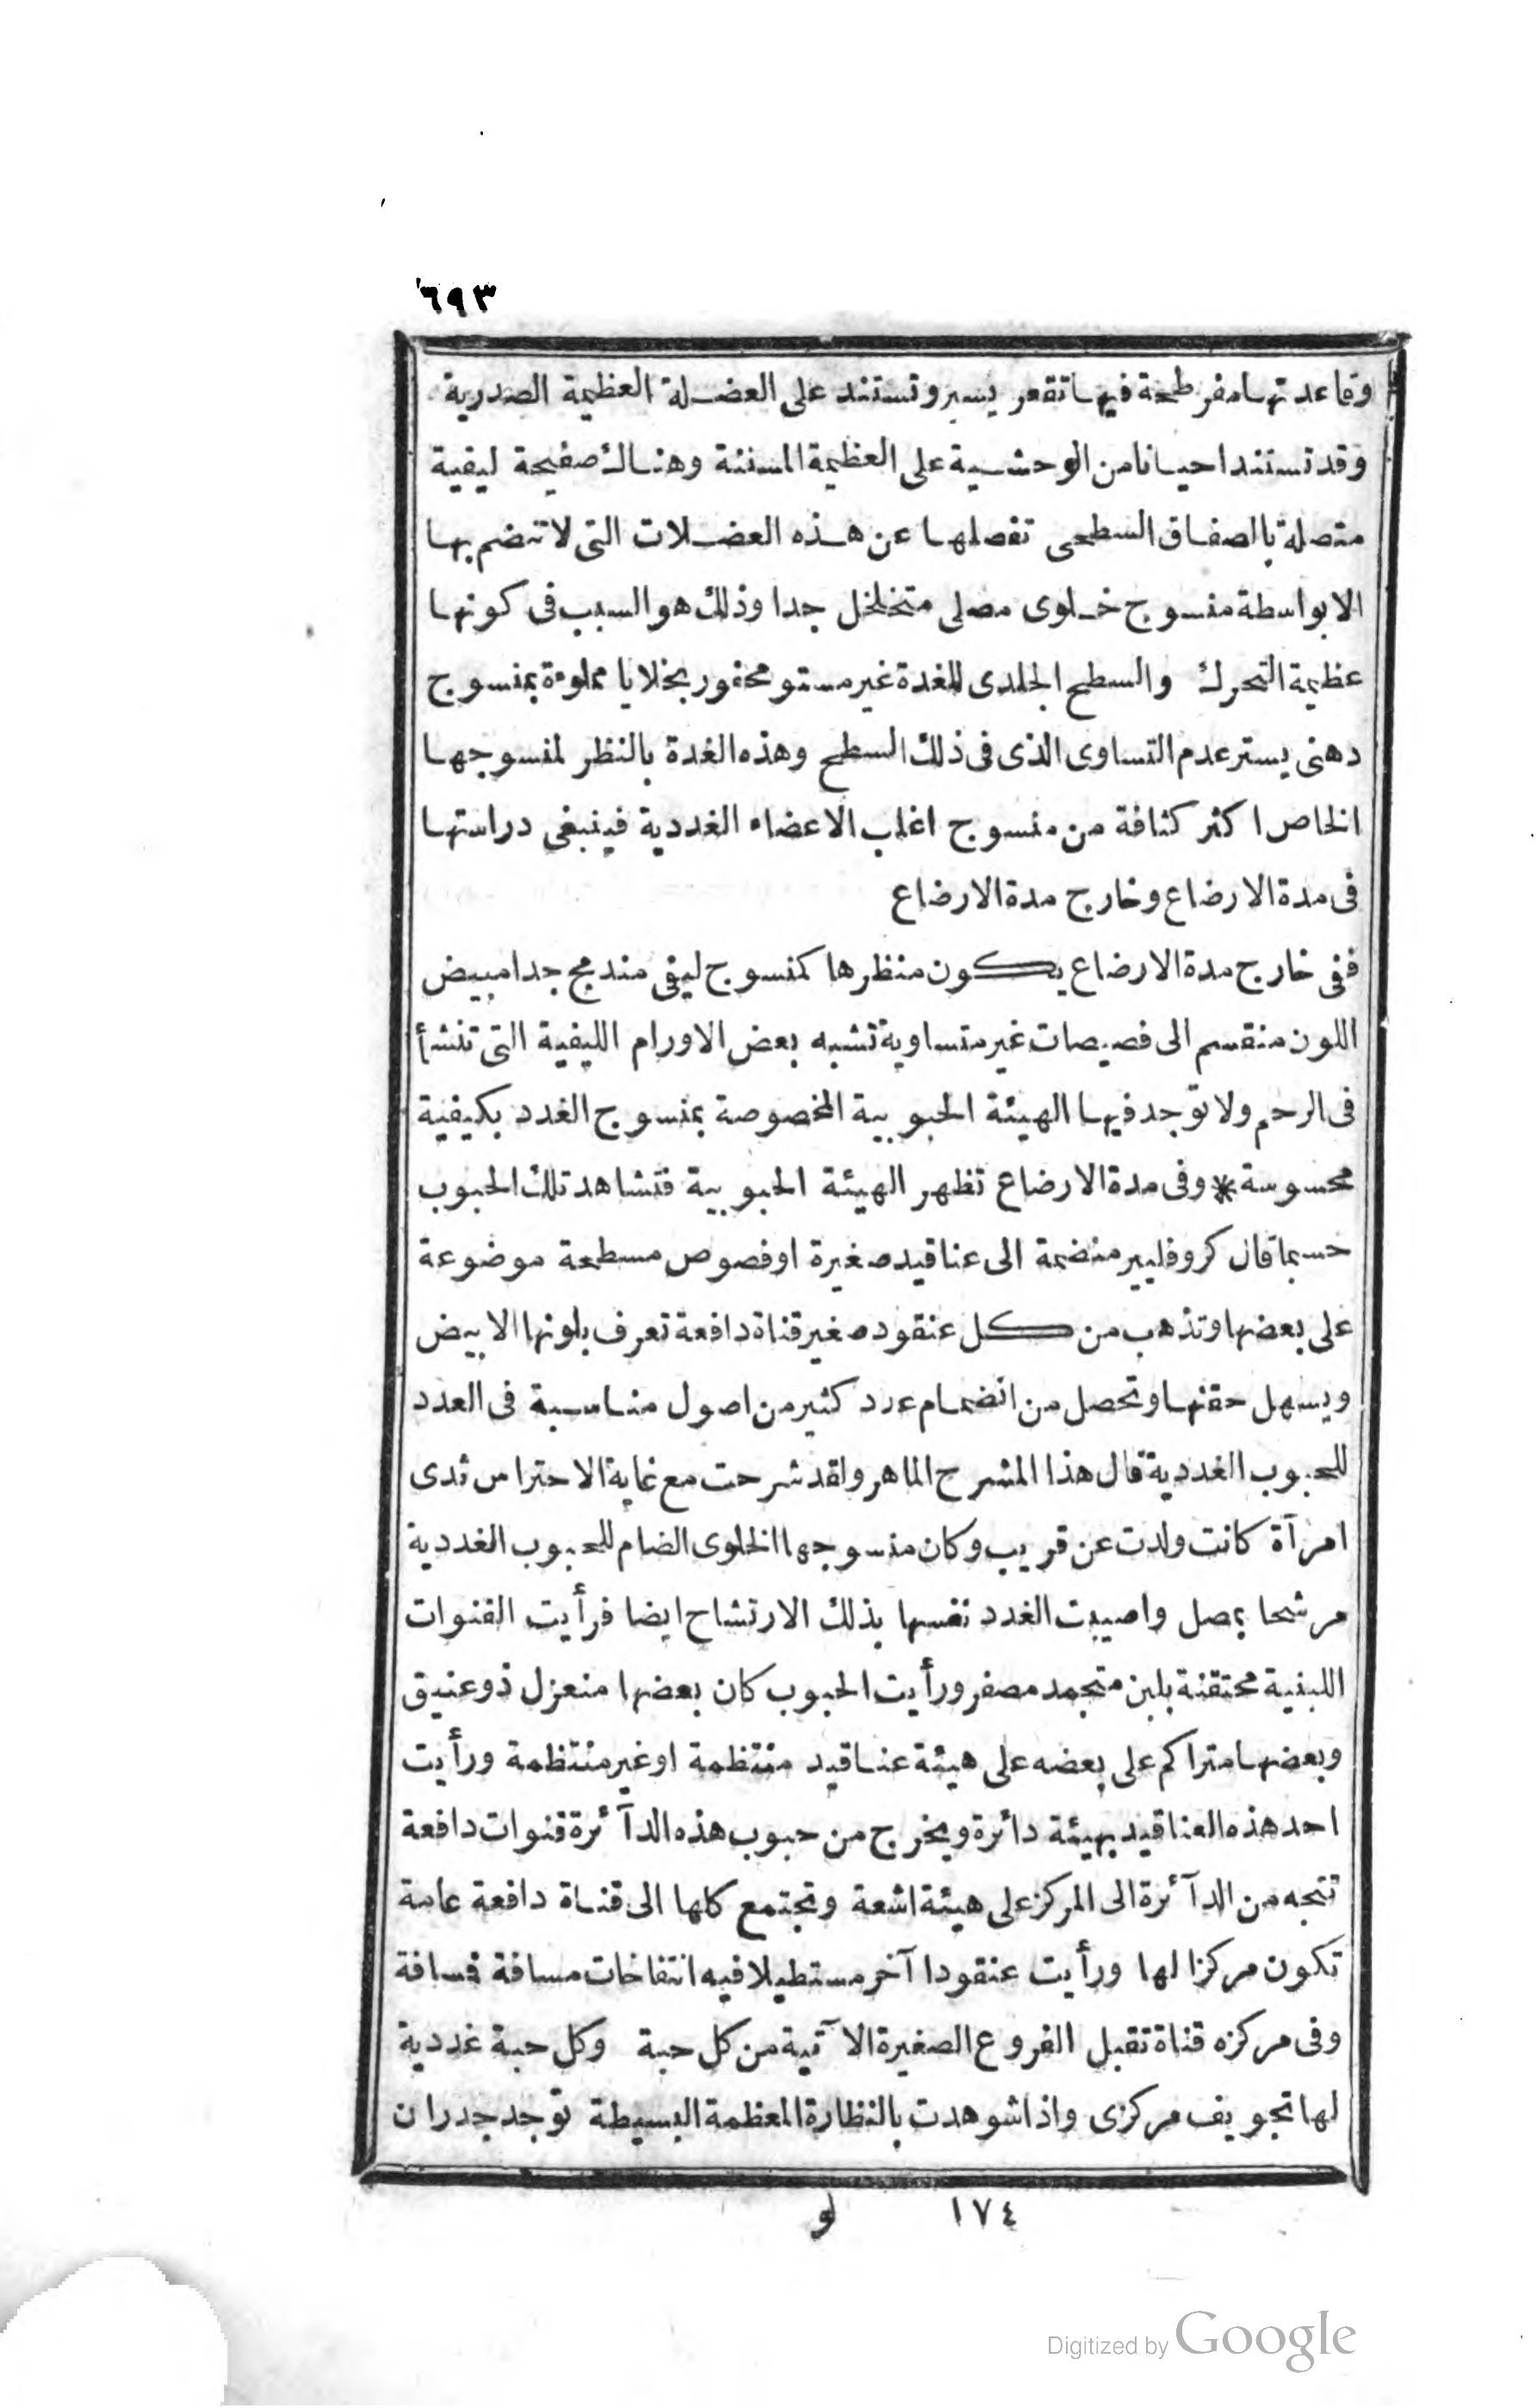 ٦٩٣
وقاعدتها مفرطحة فيها تقعر يسير وتستند على العضلة العظيمة الصدرية
وقد تستند احيانا من الوحشية على العظيمة المسننة وهناك صفيحة ليفية
متصلة بالصفاق السطحى تفصلها عن هذه العضلات التى لا تنضم بها
الا بواسطة منسوج خلوى مصلى متخلخل جدا وذلك هو السبب فى كونها
عظيمة التحرك والسطح الجلدى للغدة غير مستو محفور بخلايا مملوءة بمنسوج
دهنى يستر عدم التساوى الذى فى ذلك السطح وهذه الغدة بالنظر لمنسوجها
الخاص اكثر كثافة من منسوج اغلب الاعضاء الغددية فينبغى دراستها
فى مدة الارضاع وخارج مدة الارضاع
ففى خارج مدة الارضاع يكون منظرها كمنسوج ليفى مندمج جدا مبيض
اللون منقسم الى فصيصات غير متساوية تشبه بعض الاورام الليفية التى تنشأ
فى الرحم ولا توجد فيها الهيئة الحبوبية المخصوصة بمنسوج الغدد بكيفية
محسوسة * وفى مدة الارضاع تظهر الهيئة الحبوبية فتشاهد تلك الحبوب
حسبما قال كروفليير منضمة الى عناقيد صغيرة او فصوص مسطحة موضوعة
على بعضها وتذهب من كل عنقود صغير قناة دافعة تعرف بلونها الابيض
ويسهل حقنها وتحصل من انضمام عدد كثير من اصول مناسبة فى العدد
للحبوب الغددية قال هذا المشرح الماهر ولقد شرحت مع غاية الاحتراس ثدى
امرآة كانت ولدت عن قريب وكان منسوجها الخلوى الضام للحبوب الغددية
مرشحا بمصل واصيبت الغدد نفسها بذلك الارتشاح ايضا فرأيت القنوات
اللبنية محتقنة بلبن متجمد مصفر ورأيت الحبوب كان بعضها منعزل ذو عنيق
وبعضها متراكم على بعضه على هيئة عناقيد منتظمة او غير منتظمة ورأيت
احد هذه العناقيد بهيئة دائرة ويخرج من حبوب هذه الدآئرة قنوات دافعة
تتجه من الدآئرة الى المركز على هيئة اشعة وتجتمع كلها الى قناة دافعة عامة
تكون مركزا لها ورأيت عنقودا آخر مستطيلا فيه انتفاخات مسافة فسافة
وفى مركزه قناة تقبل الفروع الصغيرة الآتية من كل حبة وكل حبة غددية
لها تجويف مركزى واذا شوهدت بالنظارة المعظمة البسيطة توجد جدران
١٧٤ لو
Digitized by Google